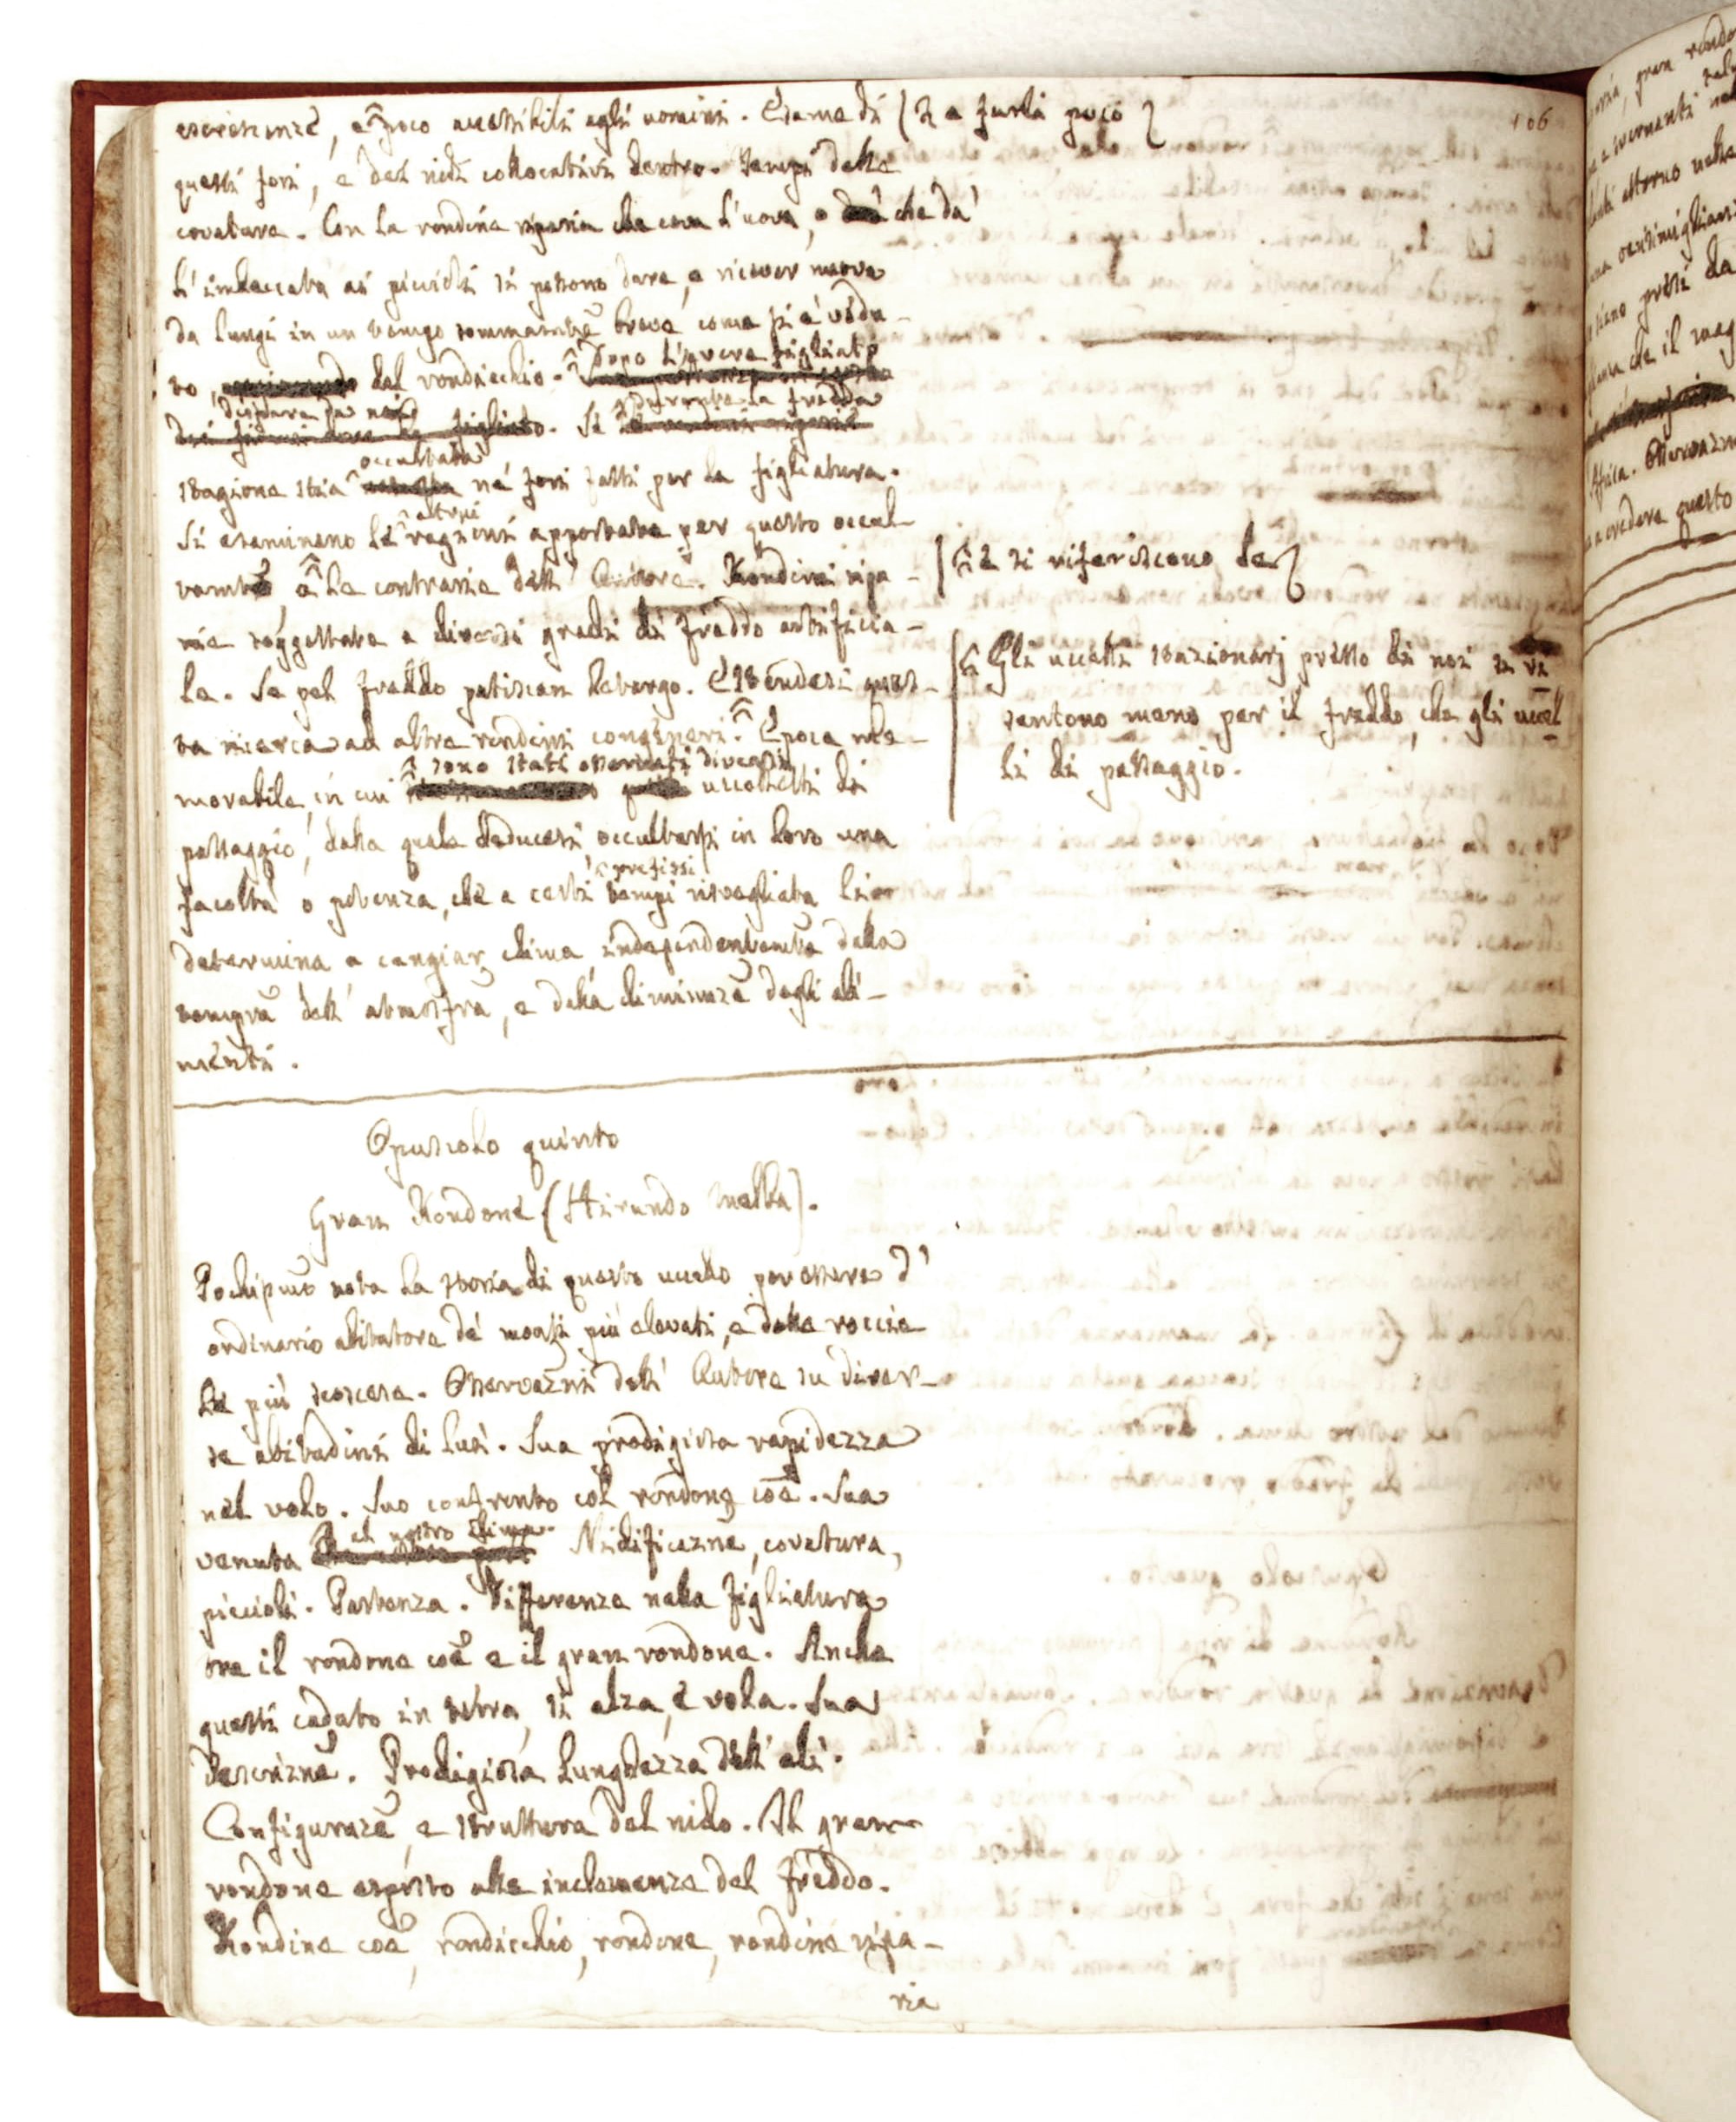 106
escrescenze, e poco accessibili agli uomini. Esame di | e farli poco
questi fori, e dei nidi collocativi dentro. Tempi della
covatura. Con la rondine riparia che cova l'uova, o che dà
l'imbeccata ai piccioli si possono dare, e ricever nuove
da lungi in un tempo sommamte breve come si è vedu-
to, dal rondicchio. Dopo l'avere figliato
dispare da noi. Se durante la fredda
stagione stia occultata ne' fori fatti per la figliatura.
Si esaminano le altrui ragioni apportate per questo occul-
tamto, e le contrarie dell' Autore. Rondini ripa-
rie soggettate a diversi gradi di freddo artificia-
le. Se pel freddo patiscan letargo. Estendesi ques-
ta ricerca ad altre rondini congeneri. Epoca me-
morabile, in cui sono stati osservati diversi uccelletti di
passaggio, dalla quale deducesi occultarsi in loro una
facoltà o potenza, che a certi prefissi tempi risvegliata li
determina a cangiar clima independentemte dalla
tempra dell' atmosfra, e dalla diminuze degli ali-
menti.
si riferiscono le
Gli uccelli stazionarj presso di noi si ri
sentono meno per il freddo, che gli uccel
li di passaggio.
Opuscolo quinto
Gran Rondone (Hirundo Melba).
Pochissmo nota la storia di questo uccello per essere d'
ordinario abitatore de' monti più elevati, e delle roccie
le più scoscese. Osservazni dell' Autore su diver-
se abitudini di lui. Sua prodigiosa rapidezza
nel volo. Suo confronto col rondone coe. Sua
venuta al nostro clima. Nidificazne, covatura,
piccioli. Partenza. Differenza nella figliatura
tra il rondone coe e il gran rondone. Anche
questi caduto in terra, si alza, e vola. Sua
descrizne. Prodigiosa lunghezza dell' ali.
Configuraze, e struttura del nido. Il gran
rondone esposto alle inclemenze del freddo.
Rondine coe, rondicchio, rondone, rondine ripa-
ria